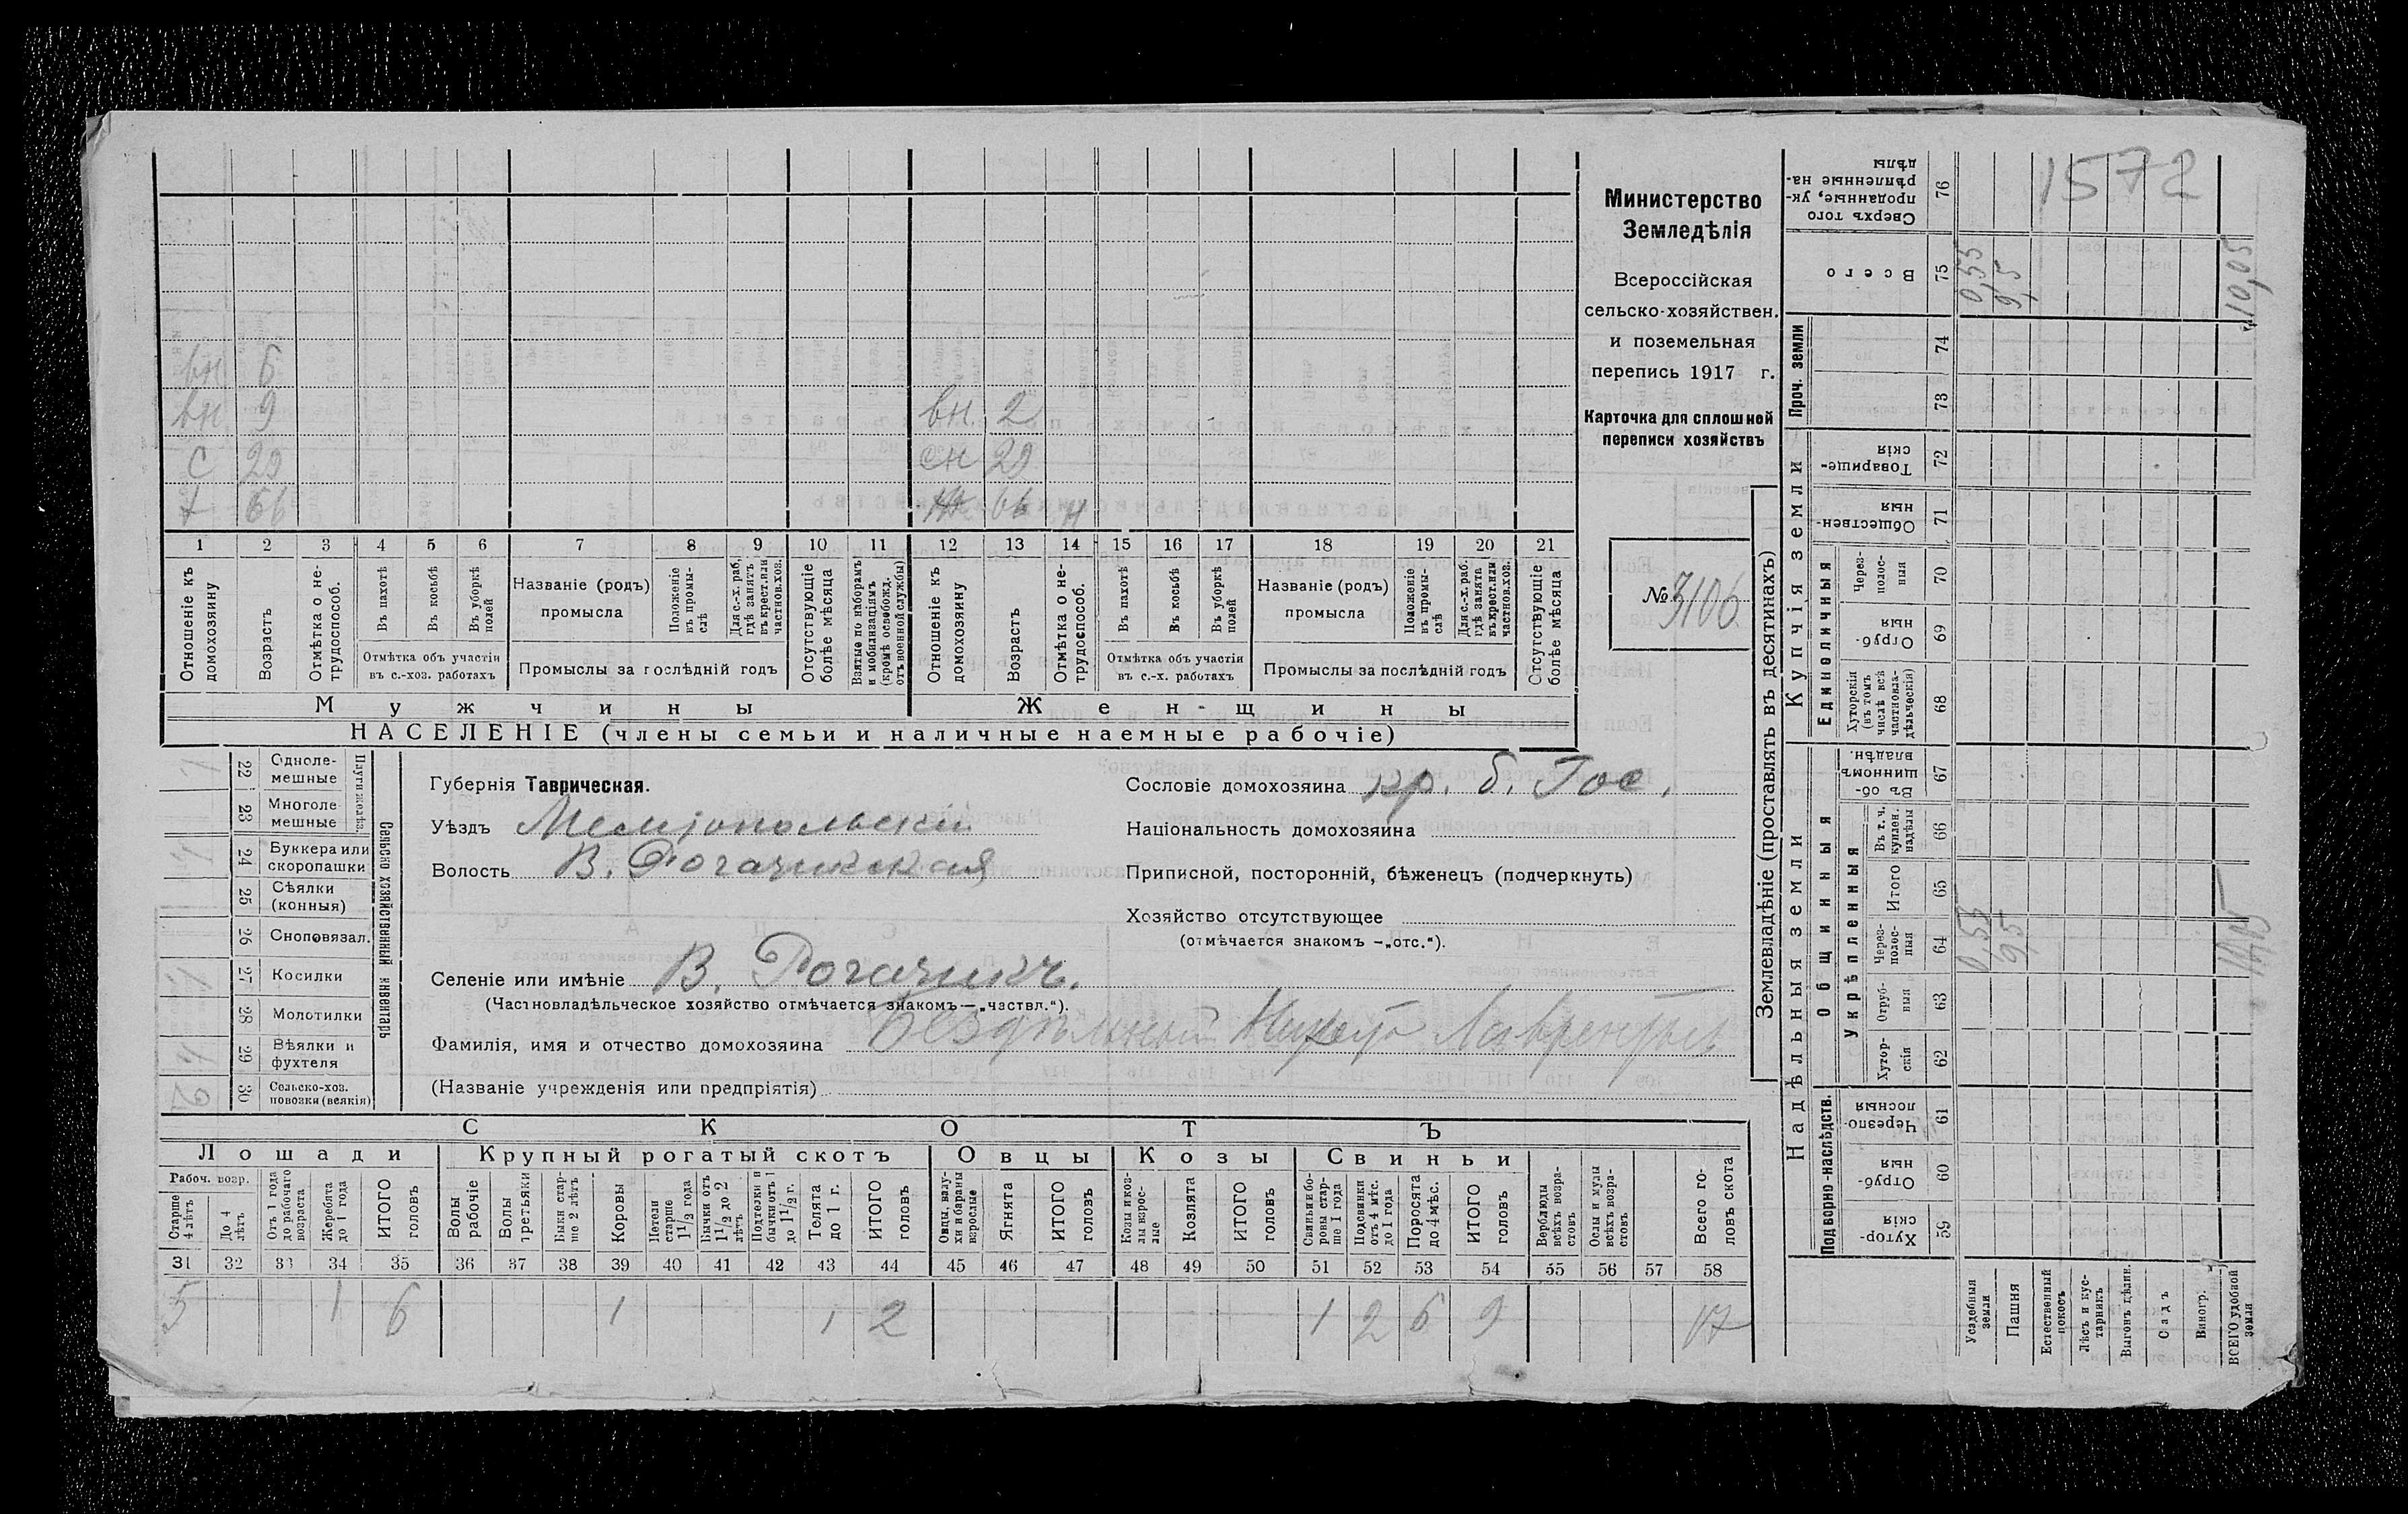 вн 6
вн 9 вн. 2
с 29 сн 29
х 66 ж 66 н
1 2 3 4 5 6 7 8 9 10 11 12 13 14 15 16 17 18 19 20 21
Отношеніе къ домохозяину
Возрастъ
Отмѣтка о не-
трудоспособ.
Въ пахотѣ
Въ косьбѣ
Въ уборкѣ
полей
Отмѣтка объ участіи
въ с.-хоз. работахъ
Названіе (родъ)
промысла
Положеніе
въ промы-
слѣ
Для с.-х. раб.
гдѣ занятъ
въ крест. или
частнов.хоз.
Промыслы за послѣдній годъ
Отсутствующіе
болѣе мѣсяца
Взятые по наборамъ
и мобилизаціямъ
(кромѣ освобожд.
отъ военной службы)
Отношеніе къ
домохозяину
Возрастъ
Отмѣтка о не-
трудоспособ.
Въ пахотѣ
Въ косьбѣ
Въ уборкѣ
полей
Отмѣтка объ участіи
въ с.-х. работахъ
Названіе (родъ)
промысла
Положеніе
въ промы-
слѣ
Для с.-х. раб.
гдѣ занята
въ крест. или
частнов.хоз.
Промыслы за послѣдній годъ
Отсутствующіе
болѣе мѣсяца
Мужчины Женщины
НАСЕЛЕНІЕ (члены семьи и наличные наемные рабочіе)
Министерство
Земледѣлія
Всероссійская
сельско-хозяйствен.
и поземельная
перепись 1917 г.
Карточка для сплошной
переписи хозяйствъ
№ 3106
Сельско хозяйственный инвентарь
Плуги желѣз.
22 Одноле-
мешные
1
23 Многоле
мешные
24 Буккера или
скоропашки
1
25 Сѣялки
(конныя)
26 Сноповязал.
27 Косилки
1
28 Молотилки
29 Вѣялки и
фухтеля
1
30 Сельско-хоз.
повозки (всякія)
2
Губернія Таврическая.
Уѣздъ Мелитопольскій
Волость В. Рогачикская
Сословіе домохозяина кр. б. Гос.
Національность домохозяина
Приписной, посторонній, бѣженецъ (подчеркнуть)
Хозяйство отсутствующее
(отмѣчается знакомъ —„отс.“).
Селеніе или имѣніе В. Рогачикъ.
(Частновладѣльческое хозяйство отмѣчается знакомъ—„частвл.“).
Фамилія, имя и отчество домохозяина Бездѣльный Лаврентьев
(Названіе учрежденія или предпріятія)
СКОТЪ
Лошади Крупный рогатый скотъ Овцы Козы Свиньи
Рабоч. возр.
Старше
4 лѣтъ
До 4
лѣтъ
Отъ 1 года
до рабочаго
возраста
Жеребята
до 1 года
ИТОГО
головъ
Волы
рабочіе
Волы
третьяки
Быки стар-
ше 2 лѣтъ
Коровы
Нетели
старше
1 1/2 года
Бычки отъ
1 1/2 до 2
лѣтъ
Подтелки и
бычки отъ 1
до 1 1/2 г.
Телята
до 1 г.
ИТОГО
головъ
Овцы, валу-
хи и бараны
взрослые
Ягнята
ИТОГО
головъ
Козы и коз-
лы взрос-
лые
Козлята
ИТОГО
головъ
Свиньи и бо-
ровы стар-
ше 1 года
Подсвинки
отъ 4 мѣс.
до 1 года
Поросята
до 4 мѣс.
ИТОГО
головъ
Верблюды
всѣхъ возра-
стовъ
Ослы и мулы
всѣхъ возра-
стовъ
Всего го-
ловъ скота
31 32 33 34 35 36 37 38 39 40 41 42 43 44 45 46 47 48 49 50 51 52 53 54 55 56 57 58
5 1 6 1 1 2 1 2 6 9 17
Землевладѣніе (проставлять въ десятинахъ)
Надѣльныя земли
Купчія земли
Проч. земли
Подворно-наслѣдств.
Общинныя
Укрѣпленныя
Единоличныя
Сверхъ того
проданные, ук-
рѣпленные на-
дѣлы
76
1572
Всего
75
0,55
9,5
10,05
74
73
Товарище-
скія
72
Обществен-
ныя
71
Через-
полос-
ныя
70
Отруб-
ныя
69
Хуторскія
(въ томъ
числѣ всѣ
частновла-
дѣльческія)
68
Въ об-
щинномъ
владѣн.
67
Въ т. ч.
куплен.
надѣлы
66
Итого
65
Через-
полос-
ныя
64
0,55
9,5
Отруб-
ныя
63
Хутор-
скія
62
Черезпо-
лосныя
61
Отруб-
ныя
60
Хутор-
скія
59
Усадебныя
земли
Пашня
Естественный
покосъ
Лѣсъ и кус-
тарникъ
Выгонъ цѣлин.
Садъ
Виногр.
ВСЕГО удобной
земли